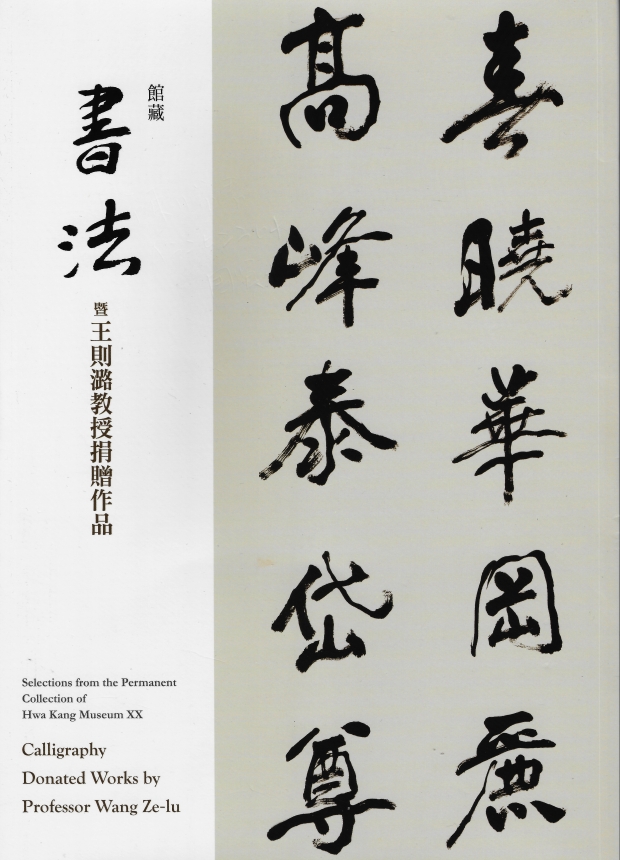 館藏
書法
暨
王則潞教授捐贈作品
Selections from the Permanent
Collection of
Hwa Kang Museum XX
Calligraphy
Donated Works by
Professor Wang Ze-lu
春曉華岡麗
高峰泰岱尊